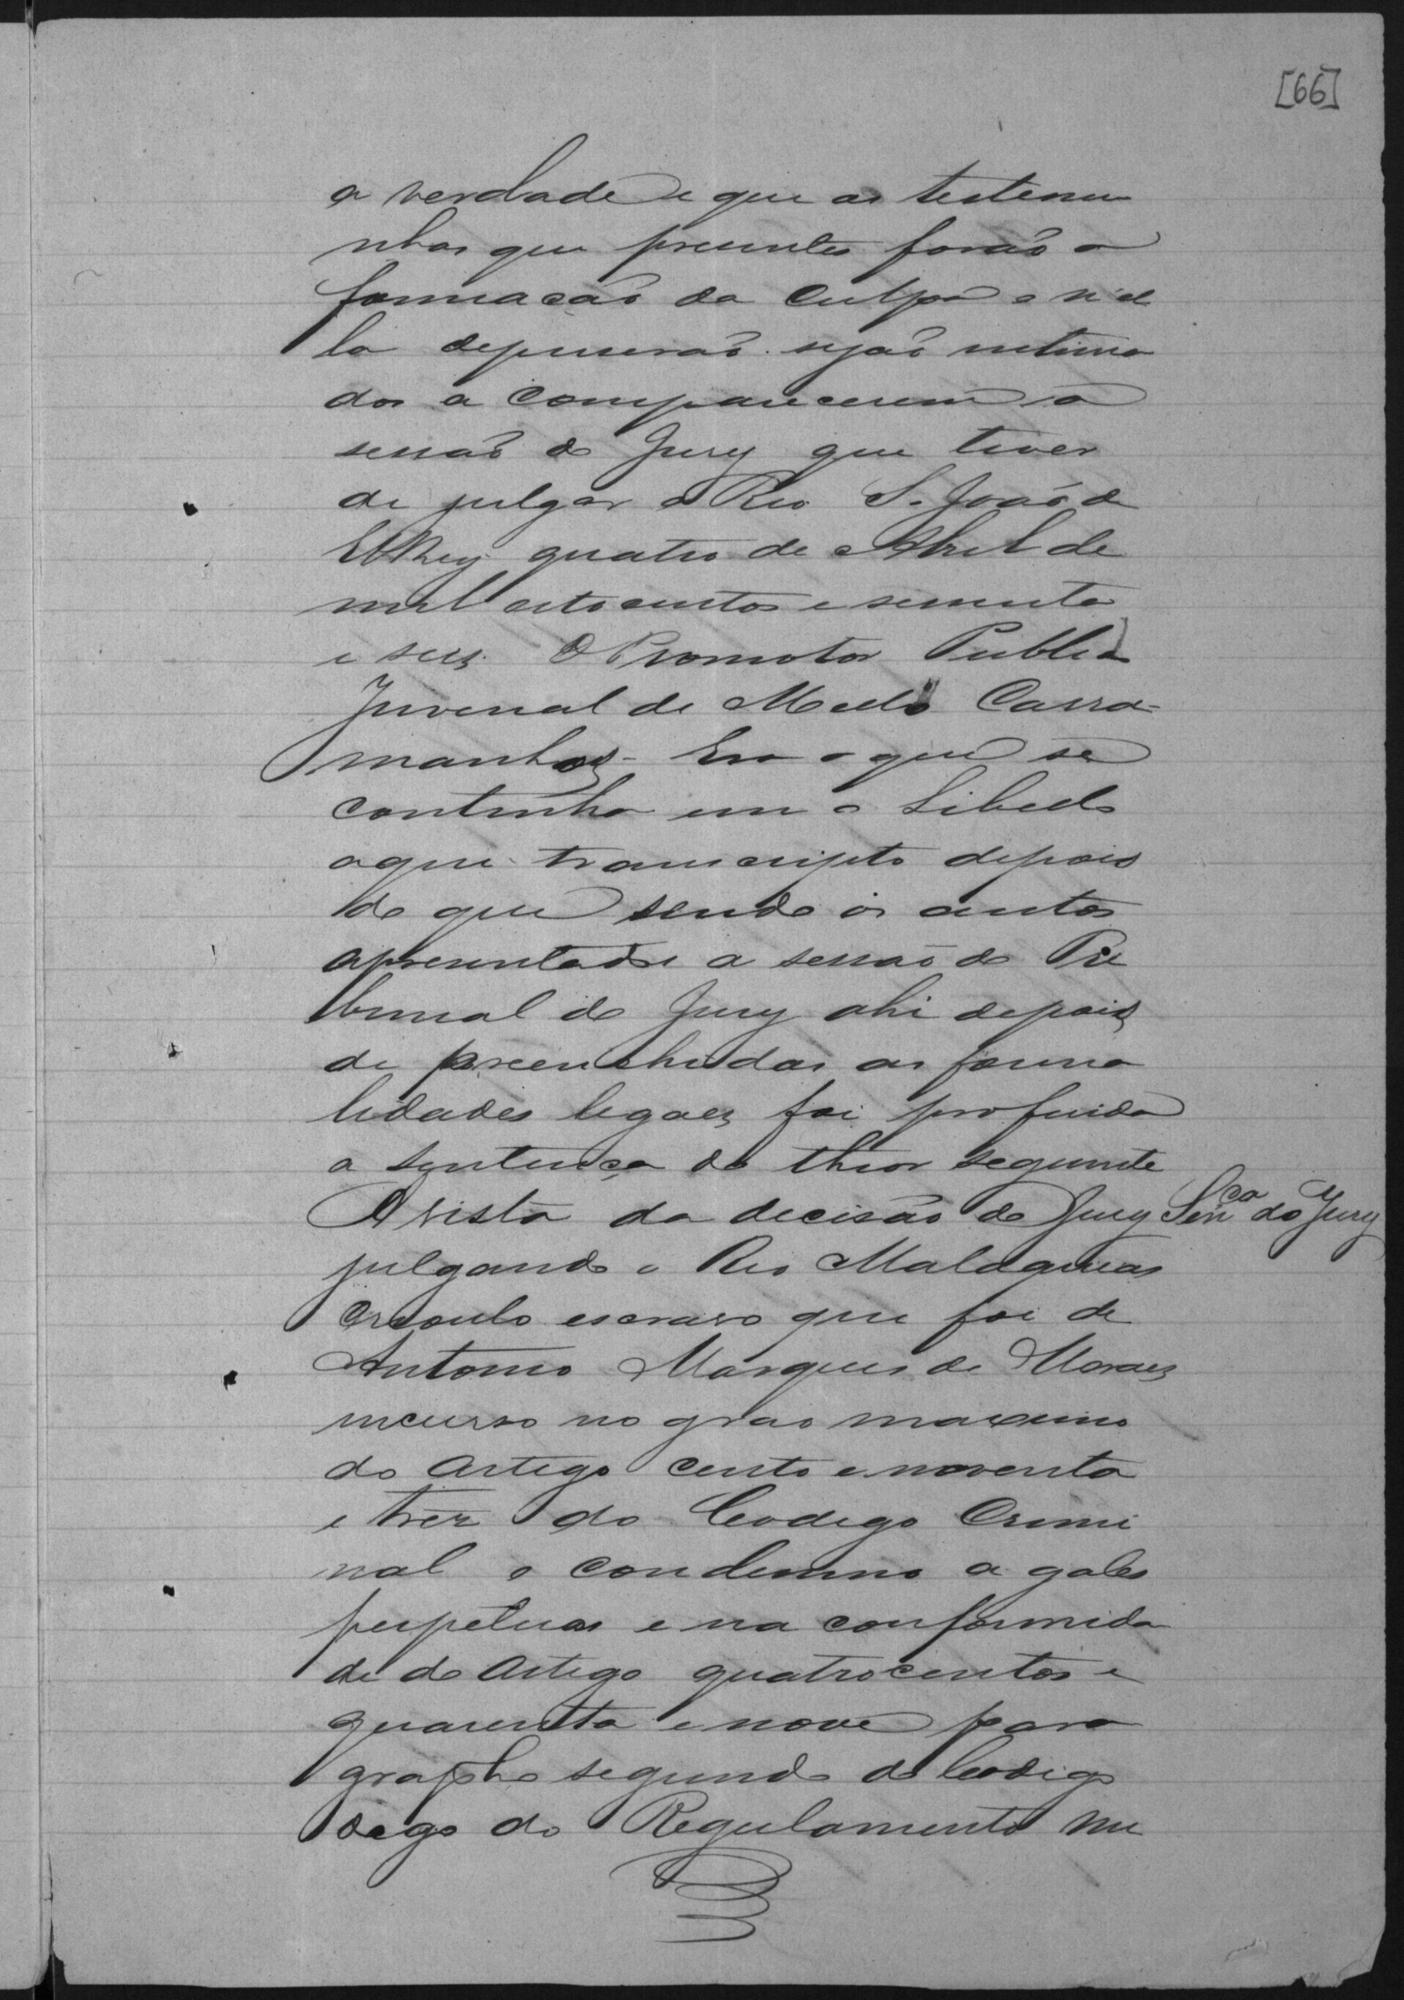 [66]
a verdade e que as testemu
nhas que presentes forão a
formacão da culpa e n'el
la depuserão sejão intima
dos a comparecerem a
sessão do Jury que tiver
de julgar o Reo S. João d
ElRey quatro de Abril de
mil oito centos e secenta
e seis. O Promotor Publico
Juvenal de Mello Carra-
manhos - Era o que se
continha em o Libello
aqui transcripto depois
do que sendo os autos
apresentados a sessão do Tri
bunal do Jury ahi depois
de preenchidas as forma
lidades legaes foi proferida
a sentença do theor seguinte
A vista da decisão do Jury Senca do Jury
julgando o Reo Malaquias
creoulo escravo que foi de
Antonio Marques de Moraes
incurso no grao maximo
do Artigo cento e noventa
e trez do Codigo Crimi
nal o condemno a galés
perpetuas e na conformida
de do Artigo quatrocentos e
quarenta e nove para
grapho segundo do Codigo
digo do Regulamento nu